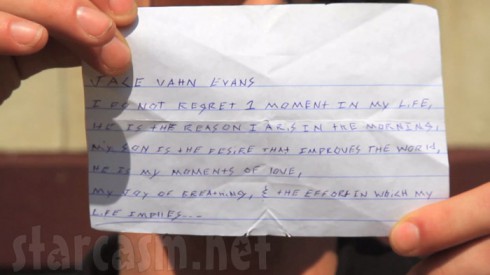 JACE VAHN EVANS
I DO NOT REGRET 1 MOMENT IN MY LIFE,
HE IS THE REASON I ARIS IN THE MORNING,
MY SON IS THE DESIRE THAT IMPROVES THE WORLD,
HE IS MY MOMENTS OF LOVE,
MY JOY OF BREATHING, & THE EFFORT IN WHICH MY
LIFE IMPLIES...
starcasm.net